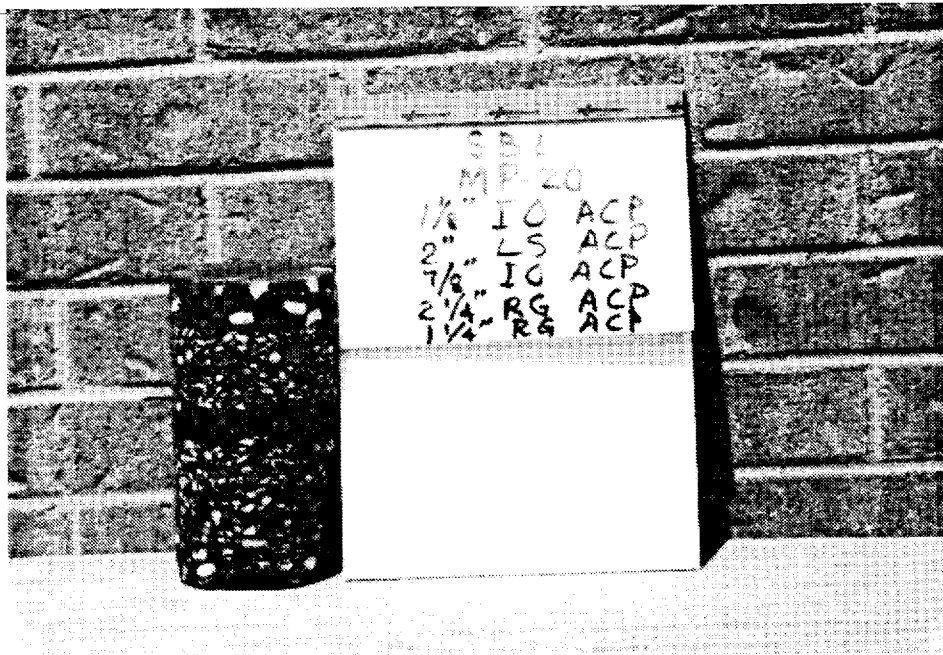 SBL
MP-20
1⅛" IO ACP
2" LS ACP
7/8" IO ACP
2 1/4" RG ACP
1 1/4" RG ACP